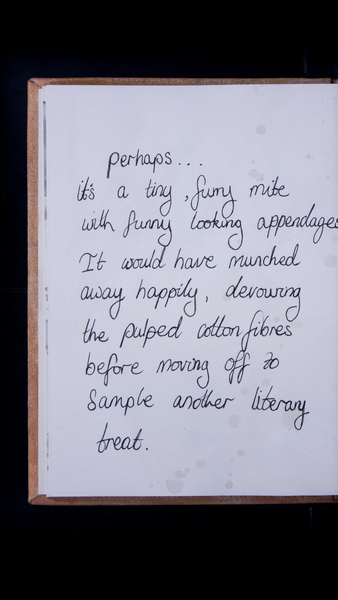 perhaps...
it's a tiny, furry mite
with funny looking appendages
It would have munched
away happily, devouring
the pulped cotton fibres
before moving off to
sample another literary
treat.